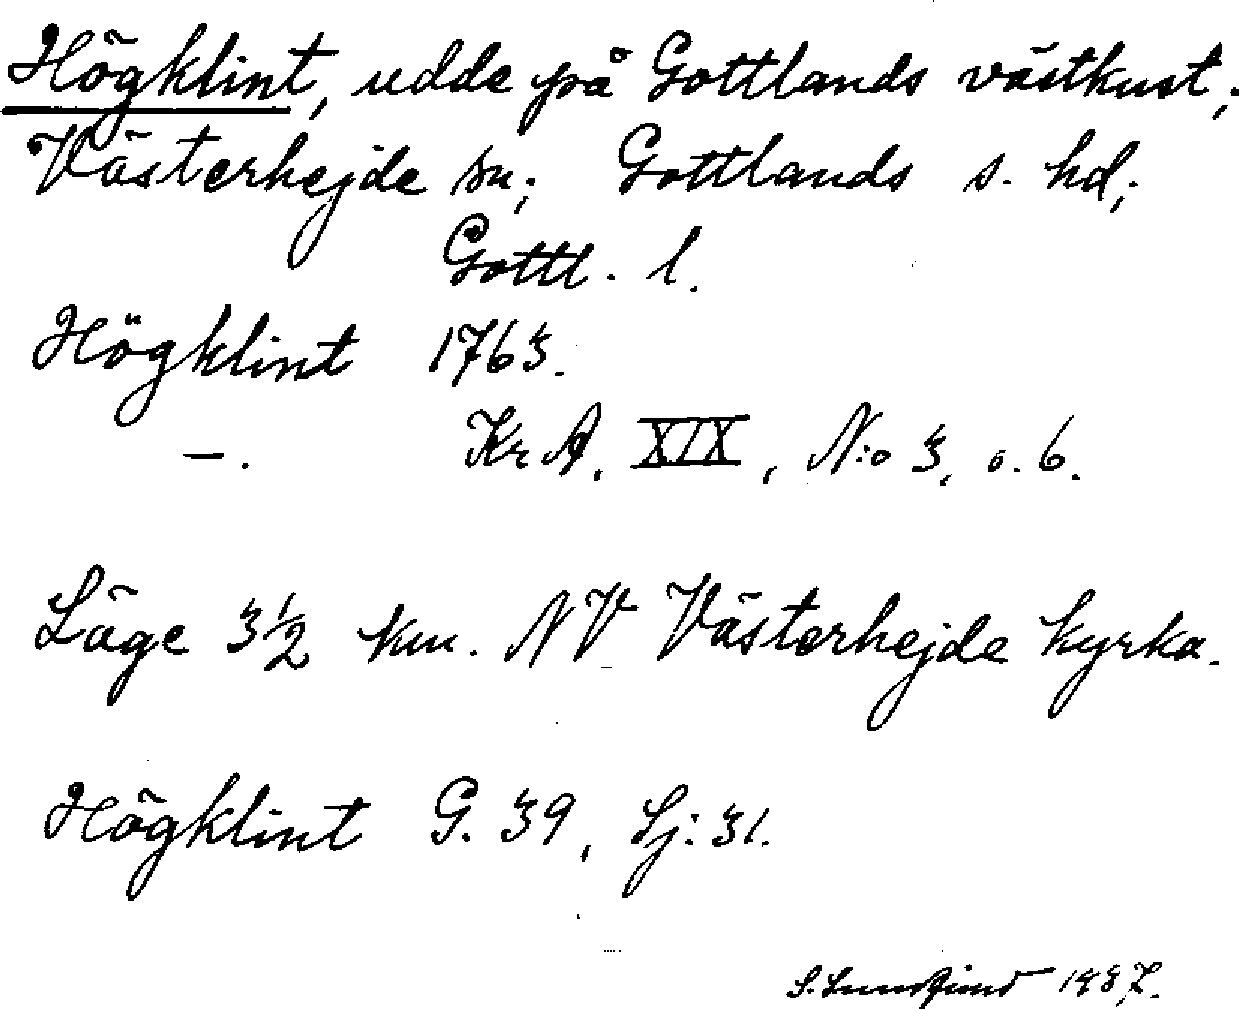 Högklint, udde på Gottlands västkust;
Västerhejde sn; Gottlands s. hd;
Gottl. l.
Högklint 1763.
—. KrA. XIX, N:o 3, o. 6.
Läge 3 1/2 km. NV Västerhejde kyrka.
Högklint G. 39, Sj: 31.
S.